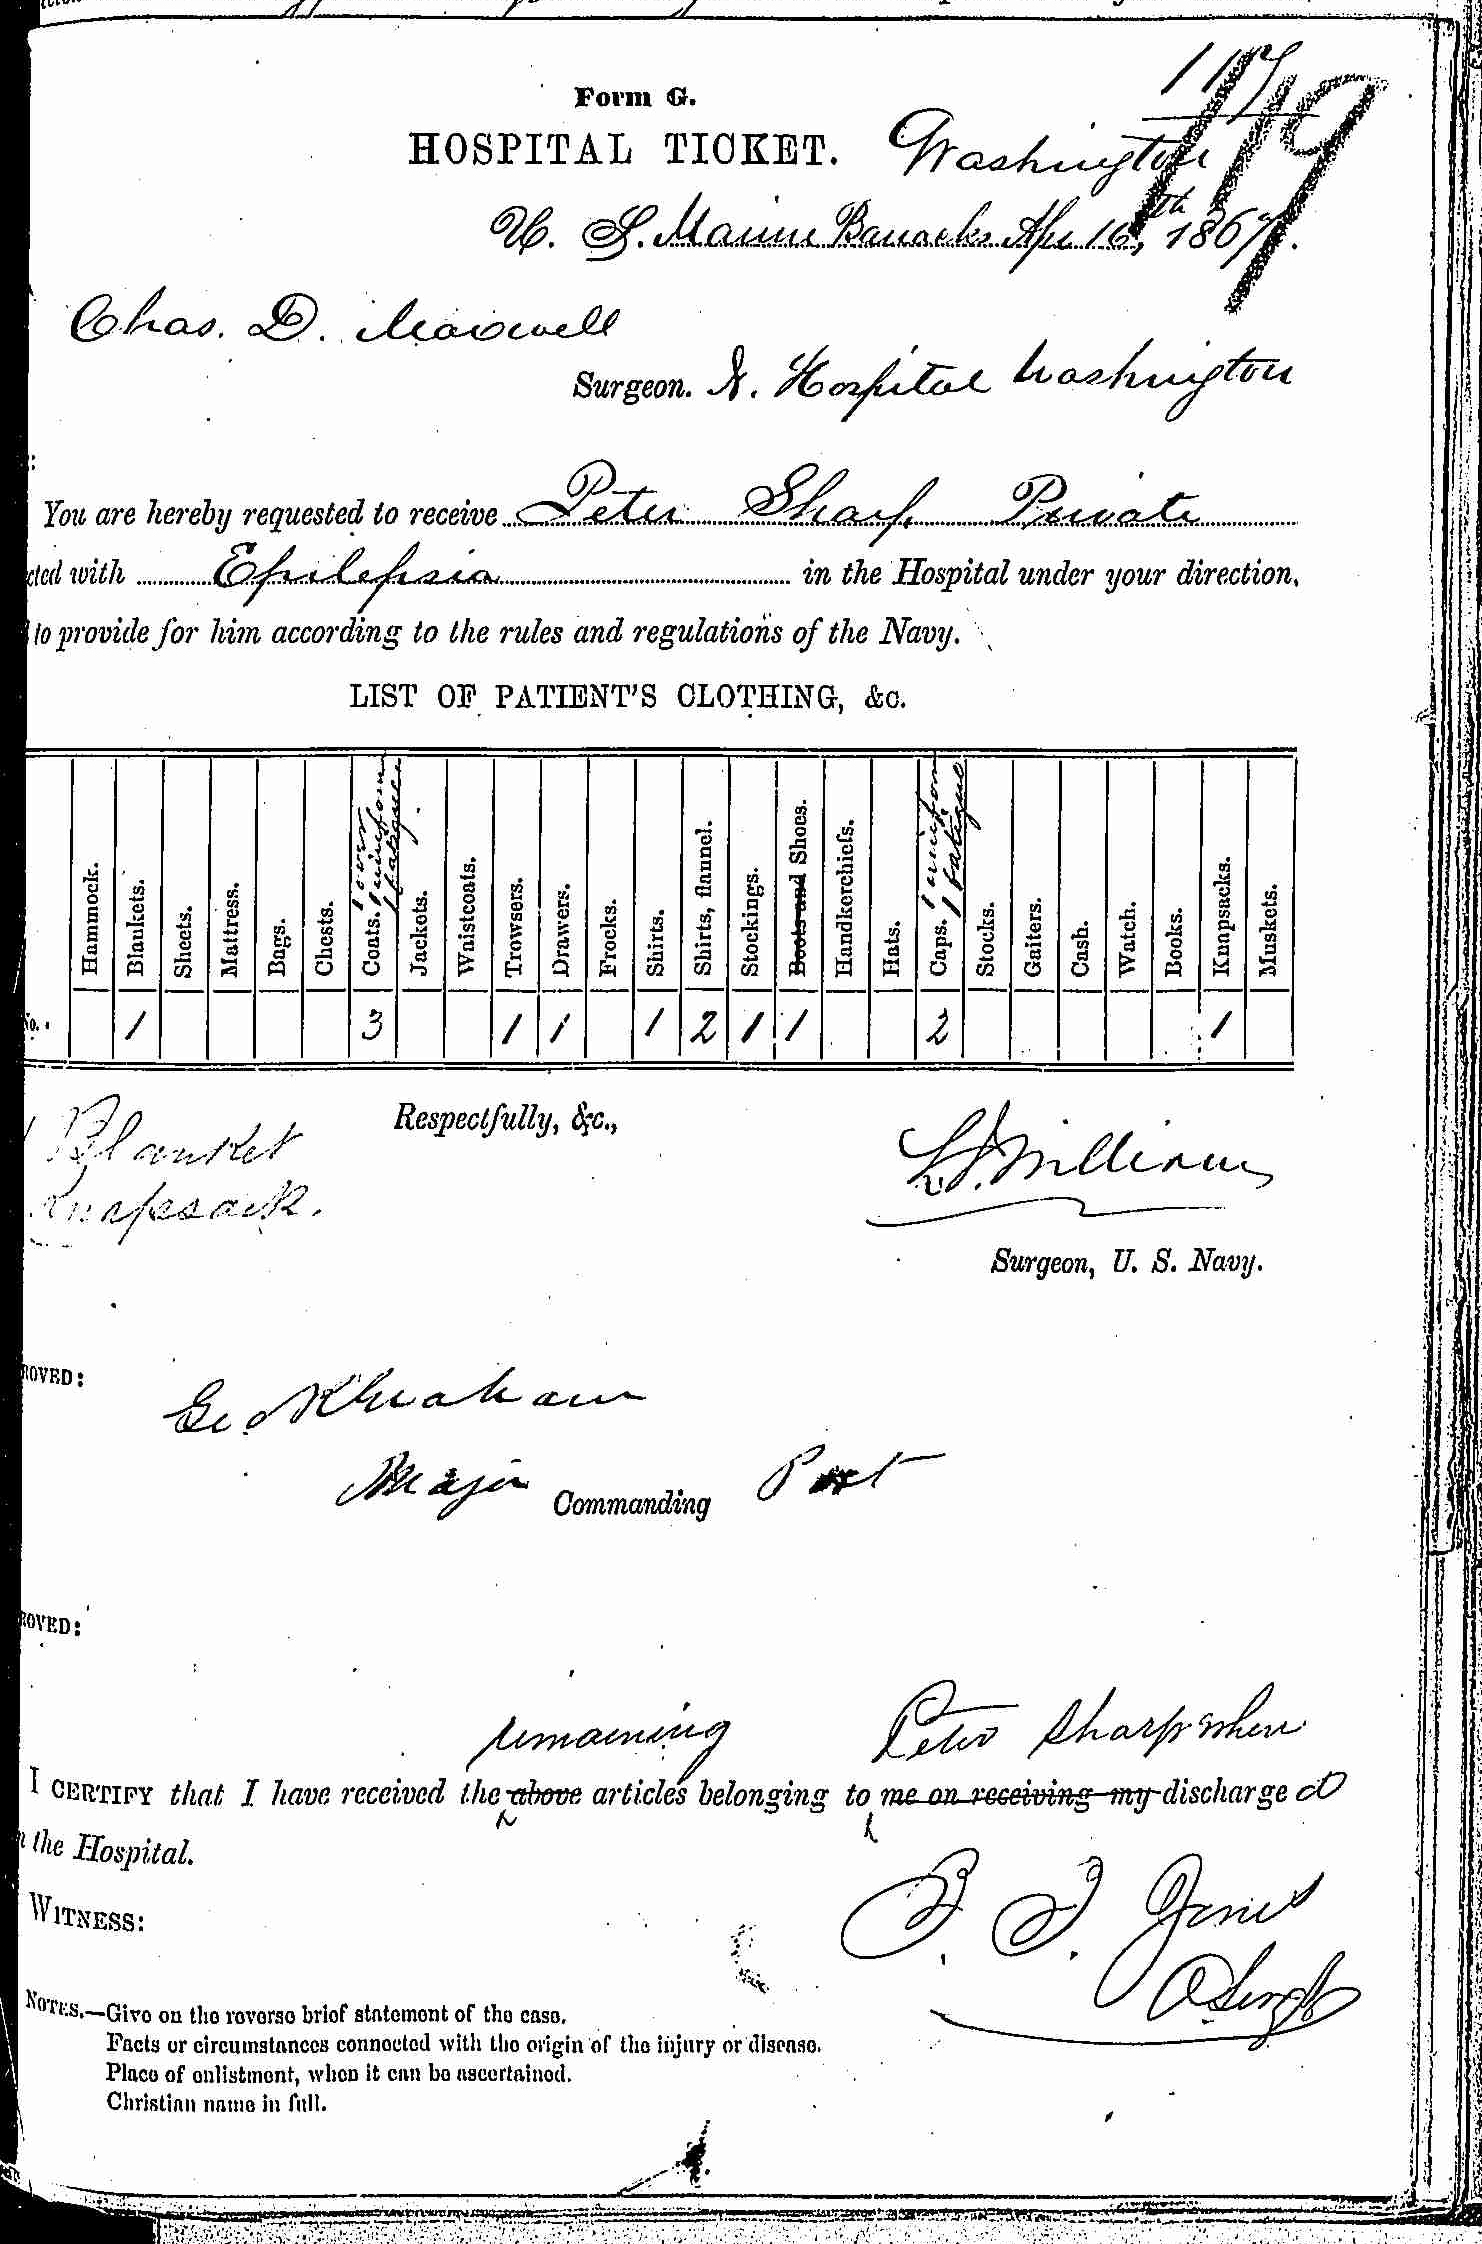 117
119
Form G.
HOSPITAL TICKET. Washington
U. S. Marine Barracks Apr 16th, 1867.
Chas. D. Maxwell
Surgeon. N. Hospital Washington
You are hereby requested to receive Peter Sharp Private
cted with Epilepsia in the Hospital under your direction,
to provide for him according to the rules and regulations of the Navy.
LIST OF PATIENT'S CLOTHING, &c.
Hammock. Blankets. Sheets. Mattress. Bags. Chests. Coats. 1 over 1 uniform 1 fatigue Jackets. Waistcoats. Trowsers. Drawers. Frocks. Shirts. Shirts, flannel. Stockings. Boots and Shoes. Handkerchiefs. Hats. Caps. 1 uniform 1 fatigue Stocks. Gaiters. Cash. Watch. Books. Knapsacks. Muskets.
No. 1 3 1 1 1 2 1 1 2 1
1 Blanket
Knapsack.
Respectfully, &c.,
Williams
Surgeon, U. S. Navy.
ROVED:
Geo R Graham
Major Commanding Post
ROVED:
remaining Peter Sharp when
I CERTIFY that I have received the above articles belonging to me on receiving my discharge d
the Hospital.
WITNESS:
B. J. Jones
O. Sergt
NOTES.—Give on the reverse brief statement of the case.
Facts or circumstances connected with the origin of the injury or disease.
Place of enlistment, when it can be ascertained.
Christian name in full.